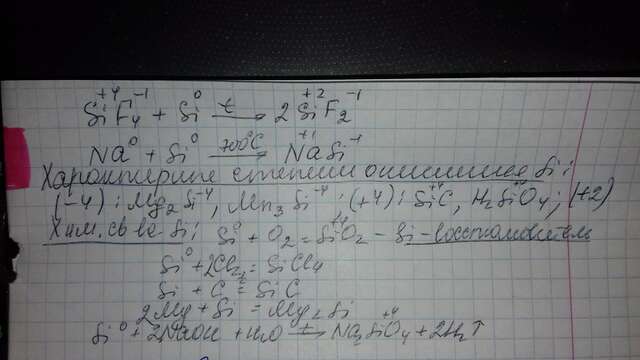 SiF₄ + Si⁰ →(t) 2SiF₂ (Si⁺⁴, F⁻¹; Si⁺², F⁻¹)
Na⁰ + Si⁰ →(700°C) Na⁺¹Si⁻¹
Характерные степени окисления Si:
(-4): Mg₂Si⁻⁴, Mn₃Si⁻⁴; (+4): Si⁺⁴C, H₂SiO₄; (+2)
Хим. св-ва Si: Si⁰ + O₂ = Si⁺⁴O₂ - Si-восстановитель
Si⁰ + 2Cl₂ = SiCl₄
Si + C = SiC
2Mg + Si = Mg₂Si
Si⁰ + 2NaOH + H₂O →(t) Na₂Si⁺⁴O₄ + 2H₂↑